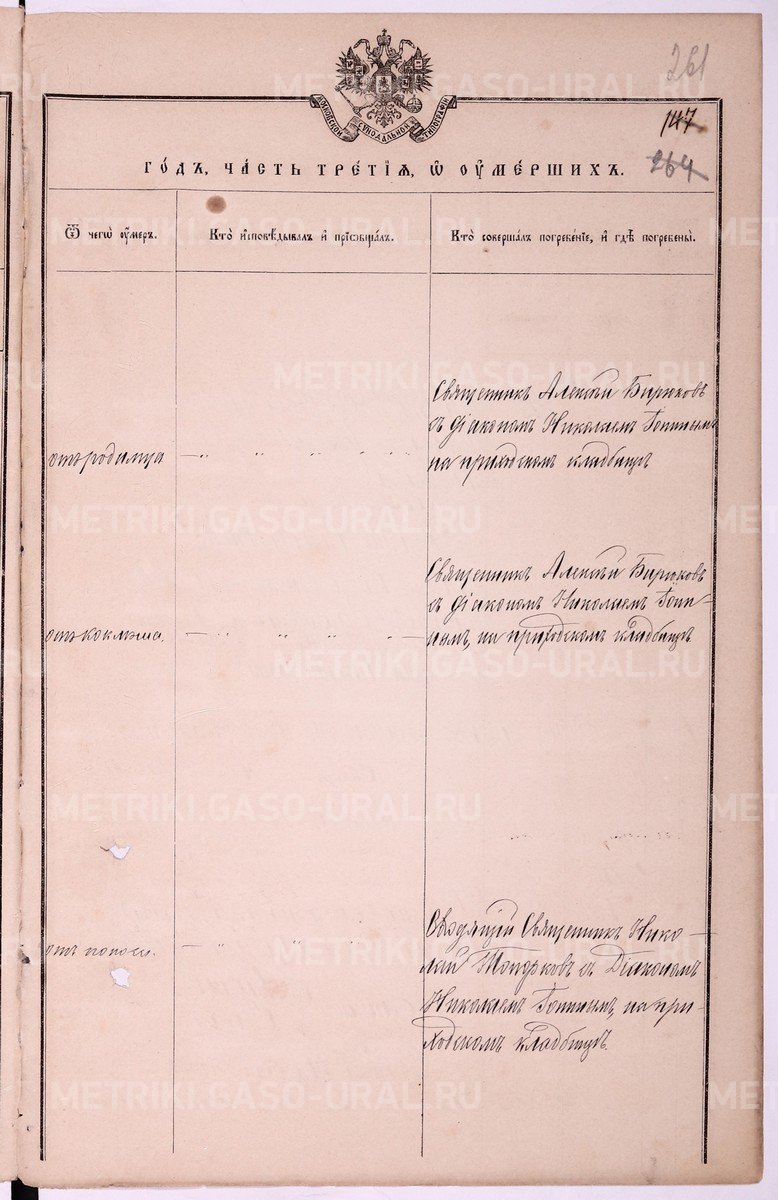 261
147
264
МОСКОВСКОЙ СѴНОДАЛЬНОЙ ТИПОГРАФІИ
ГО́ДЪ, ЧА́СТЬ ТРЕ́ТІѦ, Ѡ҆ ОУ҆МЕ́РШИХЪ.
Ѿ чегѡ̀ ᲂу҆́меръ.
Кто̀ и҆сповѣ́дывалъ и҆ прїѡбща́лъ.
Кто̀ соверша́лъ погребе́нїе, и҆ гдѣ̀ погребены̀.
отъ родимца
Священникъ Алексѣй Бирюковъ
съ діакономъ Николаемъ
на приходскомъ кладбищѣ
отъ коклюша.
Священникъ Алексѣй Бирюковъ
съ діакономъ Николаемъ
на приходскомъ кладбищѣ.
отъ поноса.
Священникъ Нико-
лай съ Діакономъ
Николаемъ на при-
ходскомъ кладбищѣ.
METRIKI.GASO-URAL.RU